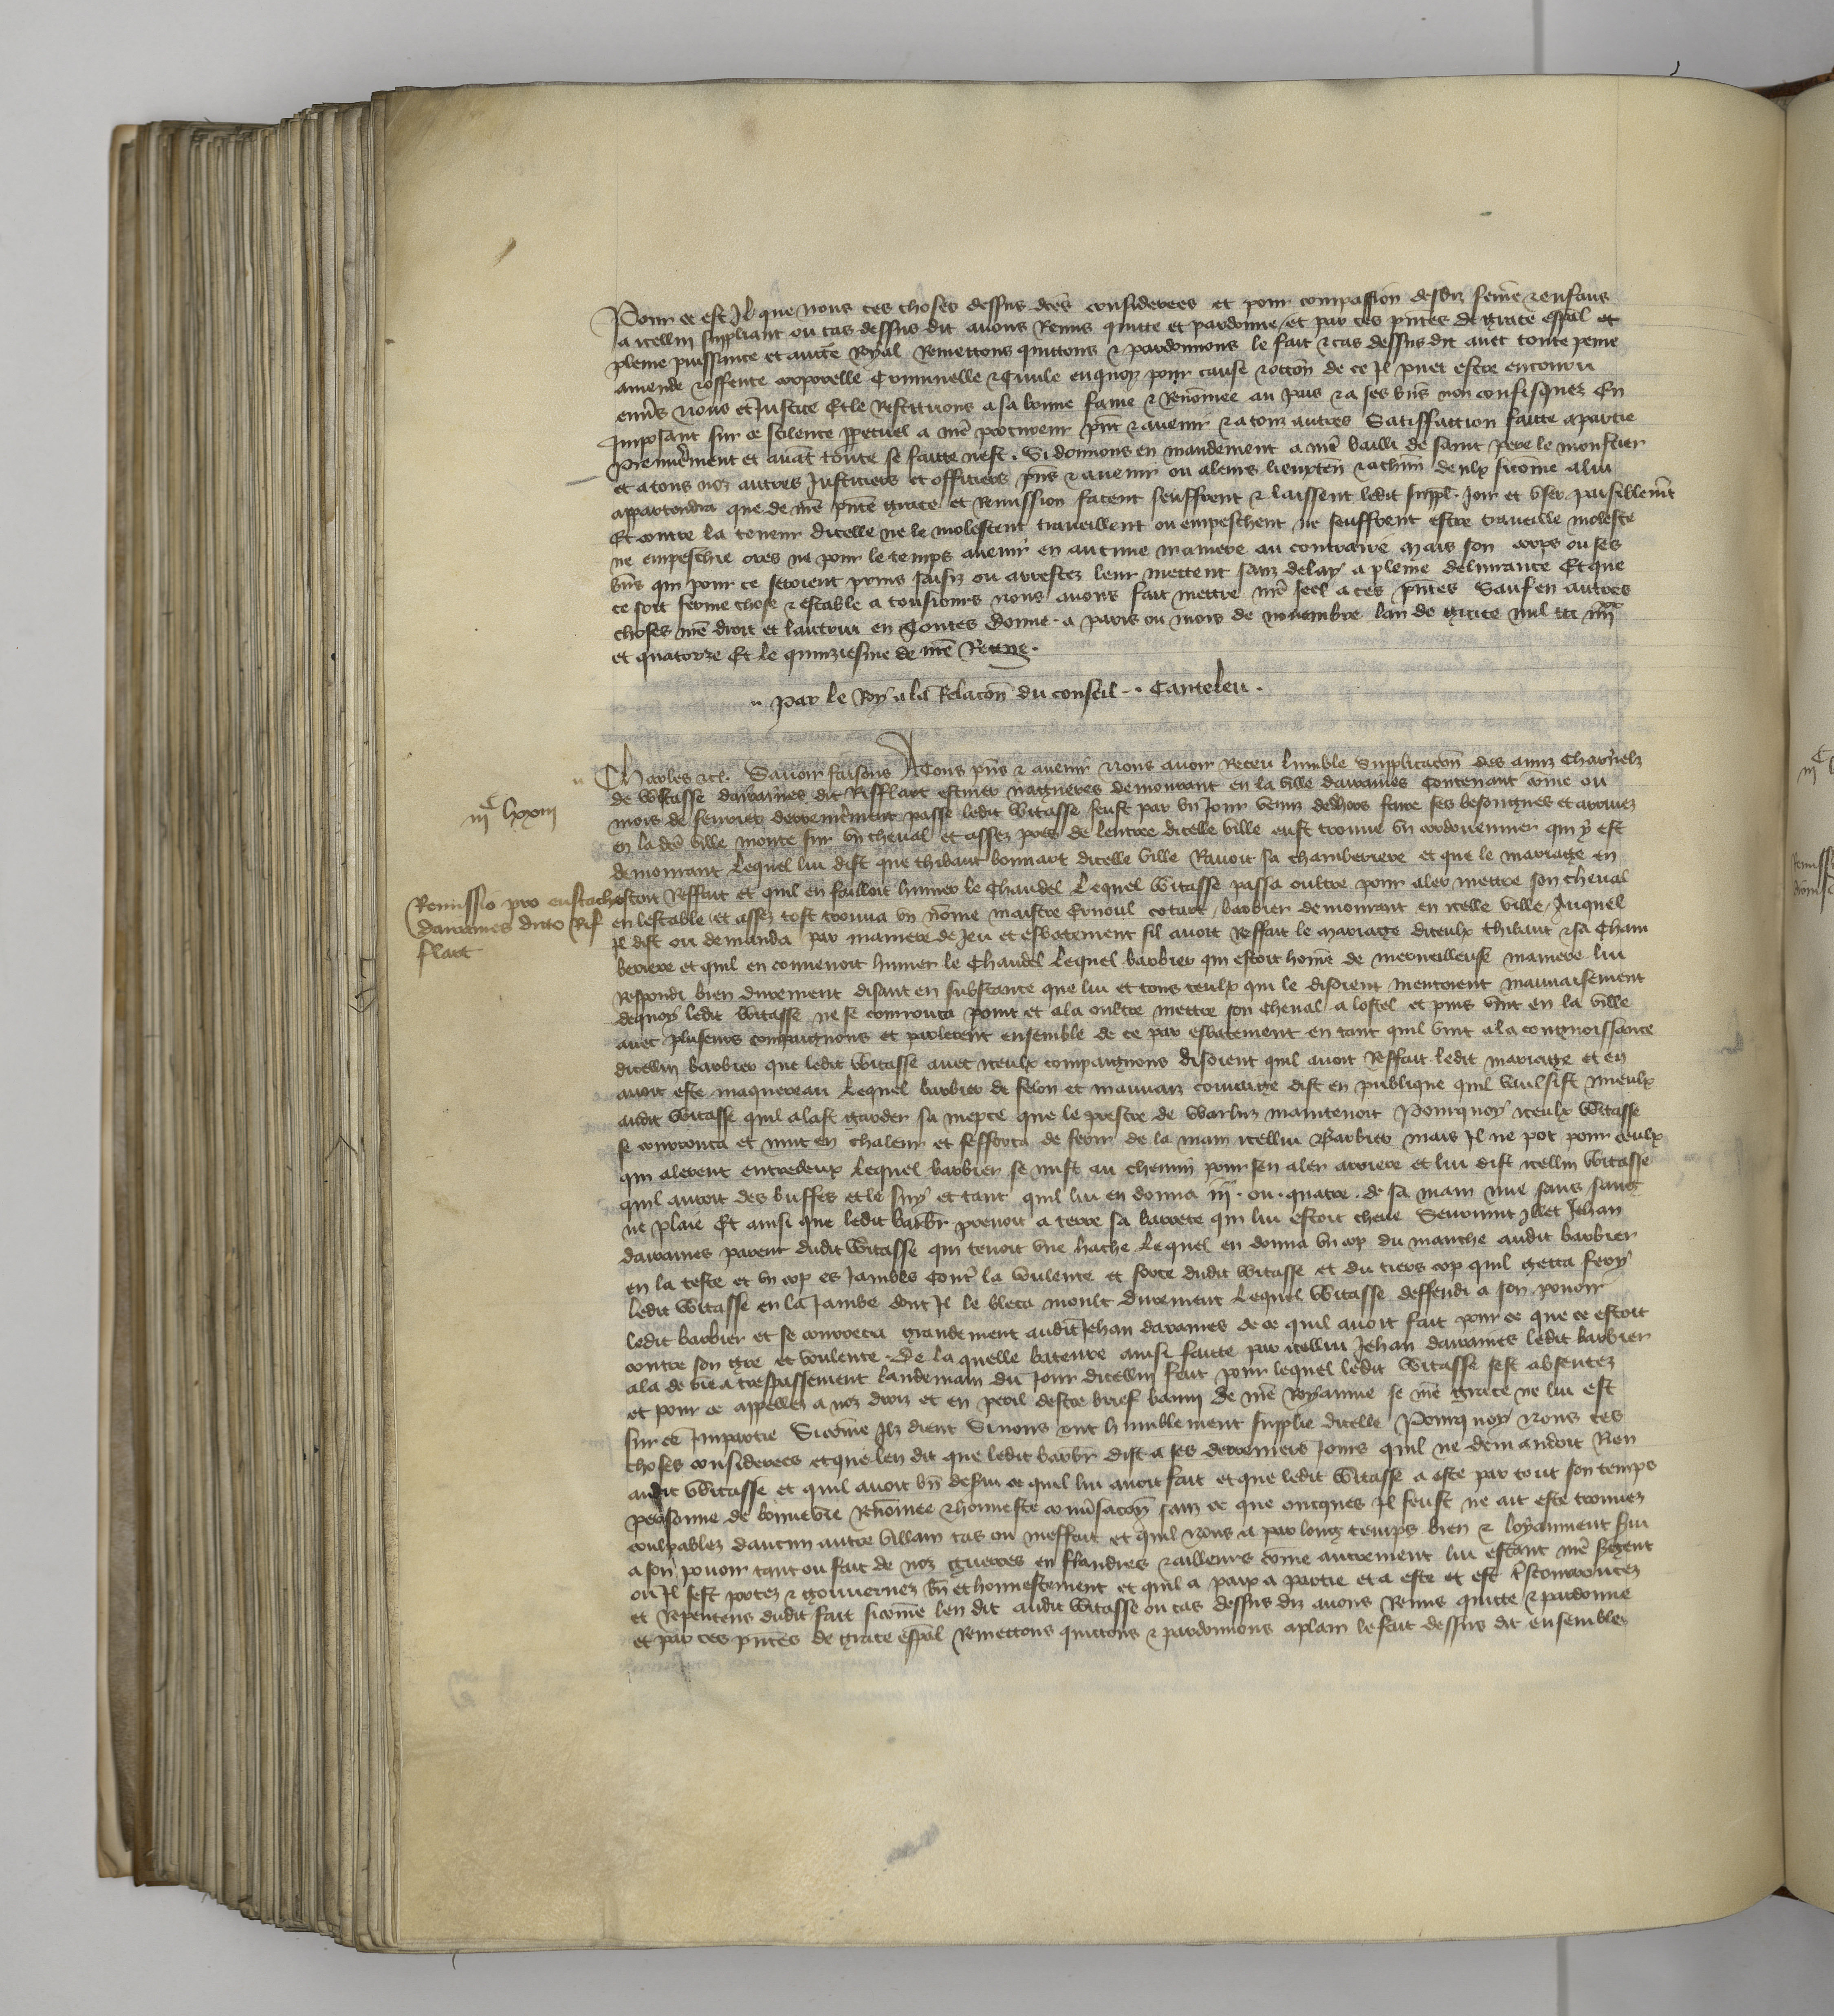 Pour ce est Il que nous ces choses dessus dces considerees et pour compassion desdiz feme & enfans
a icellui suppliant ou cas dessus dit avons Remis quitte et pardonne et par ces pntes de grace espal et
pleine puissance et aucte Royal Remettons quittons & pardonnons le fait & cas dessus dit avec toute peine
amende & offense corporelle Criminelle & Civile en quoy pour cause & occon de ce Il puet estre encouru
envs nous et Justice Et le Restituons a sa bonne fame & Renomee au pais & a ses bns non confisquez En
Imposant sur ce scilence ppetuel a nre procureur pnt & avenir & a touz autres Satiffaction faicte a partie
premieremt et avat toute se faicte nest. Si donnons en mandement a nre bailli de saint pere le monstier
et a tous noz autres Justiciers et officiers pns & avenir ou a leurs lieuxten & a chun deulx sicome a lui
appartendra que de nre pnte grace et Remission facent seuffrent & laissent ledit suppl. Joir et user paisiblemt
Et contre la teneur dicelle ne le molestent travaillent ou empeschent ne seuffrent estre travaille moleste
ne empeschie ores ne pour le temps avenir en aucune maniere au contraire Mais son corps ou ses
bns qui pour ce seroient prins saisiz ou arrestez leur mettent sanz delay a pleine delivrance Et que
ce soit ferme chose & estable a tousiours nous avons fait mettre nre seel a ces pntes Sauf en autres
choses nre droit et lautrui en toutes donne a paris ou mois de novembre lan de grace mil ccc iiiixx
et quatorze Et le quinziesme de nre Regne.
Par le Roy a la Relacon du conseil. Canteleu.
Charles &c. Savoir faisons A Tous pns & avenir Nous avoir Receu lumble Supplicacon des amis Charnelz
iiic lxxiii
de Witasse davaines dit Rifflart escuier nagueres demourant en la ville davaines Contenant come ou
mois de fevrier derrenieremt passe ledit Witasse feust par un Jour venu dehors faire ses besongnes et arrivez
en la dce ville monte sur un cheval et assez pres de lentree dicelle ville eust trouve un cordouennier qui y est
demourant Lequel lui dist que thibaut bonnart dicelle ville Ravoit sa chamberiere et que le mariage en
Remissio pro eustachio
davaines dicto Rif
flart
estoit Reffait et quil en failloit humer le Chaudel Lequel Witasse passa oultre pour aler mettre son cheval
en lestable et assez tost trouva un nome maistre Ernoul cotart barbier demourant en icelle ville Auquel
Il dist ou demanda par maniere de Jeu et esbatement sil avoit Reffait le mariage diceulx thibaut & sa Cham
beriere et quil en convenoit humer le Chaudel Lequel barbier qui estoit home de merveilleuse maniere lui
Respondi bien durement disant en substance que lui et tous ceulx qui le disoient mentoient mauvaisement
dequoy ledit Witasse ne se courrouca point et ala oultre mettre son cheval a lostel et puis vint en la ville
avec pluseurs compaignons et parlerent ensemble de ce par esbatement en tant quil vint a la congnoissance
dicellui barbier que ledit Witasse avec iceulx compaignons disoient quil avoit Reffait ledit mariage et en
avoit este maquereau Lequel barbier de felon et mauvaiz courage dist en publique quil vaulsist mieulx
audit Witasse quil alast garder sa niepce que le prestre de Warluz maintenoit Pourquoy iceulx Witasse
se courrouca et mut en chaleur et sefforca de ferir de la main icellui Barbier mais Il ne pot pour ceulx
qui alerent entredeux Lequel barbier se mist au chemin pour sen aler arriere et lui dist icellui Witasse
quil auroit des buffes et le suy et tant quil lui en donna iii. ou quatre de sa main nue sans sang
ne plaie Et ainsi que ledit barbr prenoit a terre sa barrete qui lui estoit cheue Seurvint Illec Jehan
davaines parent dudit Witasse qui tenoit une hache Lequel en donna un cop du manche audit barbier
en la teste et un cop es Jambes Contre la voulente et force dudit Witasse et du tiers cop quil getta fery
ledit Witasse en la Jambe dont Il le bleca moult durement Lequel Witasse deffendi a son povoir
ledit barbier et se courrouca grandement audit Jehan davaines de ce quil avoit fait pour ce que ce estoit
contre son gre et voulente. De la quelle bateure ainsi faicte par icellui Jehan davaines ledit barbier
ala de vie a trespassement landemain du Jour dicellui fait pour lequel ledit Witasse sest absentez
et pour ce appellez a noz droiz et en peril destre brief banni de nre Royaume se nre grace ne lui est
sur ce Impartie Sicome Ilz dient Si nous ont humblement supplie dicelle Pourquoy nous ces
choses considerees et que len dit que ledit barbr dist a ses derreniers Jours quil ne demandoit Rien
audit Witasse et quil avoit bn desvi ce quil lui avoit fait et que ledit Witasse a este par tout son temps
personne de bonne vie Renomee & honneste conversacon sanz ce que oncques Il feust ne ait este trouvez
coulpablez daucun autre villain cas ou meffait et quil nous a par long temps bien & loyaument servi
a son povoir tant ou fait de noz guerres en flandres & ailleurs come autrement lui estant nre sergent
ou Il sest portez & gouvernez bn et honnestement et quil a paix a partie et a este et est tres courroucez
et Repentens dudit fait sicome len dit audit Witasse ou cas dessus diz avons Remis quitte & pardonne
et par ces pntes de grace espal Remettons quittons & pardonnons a plain le fait dessus dit ensemble